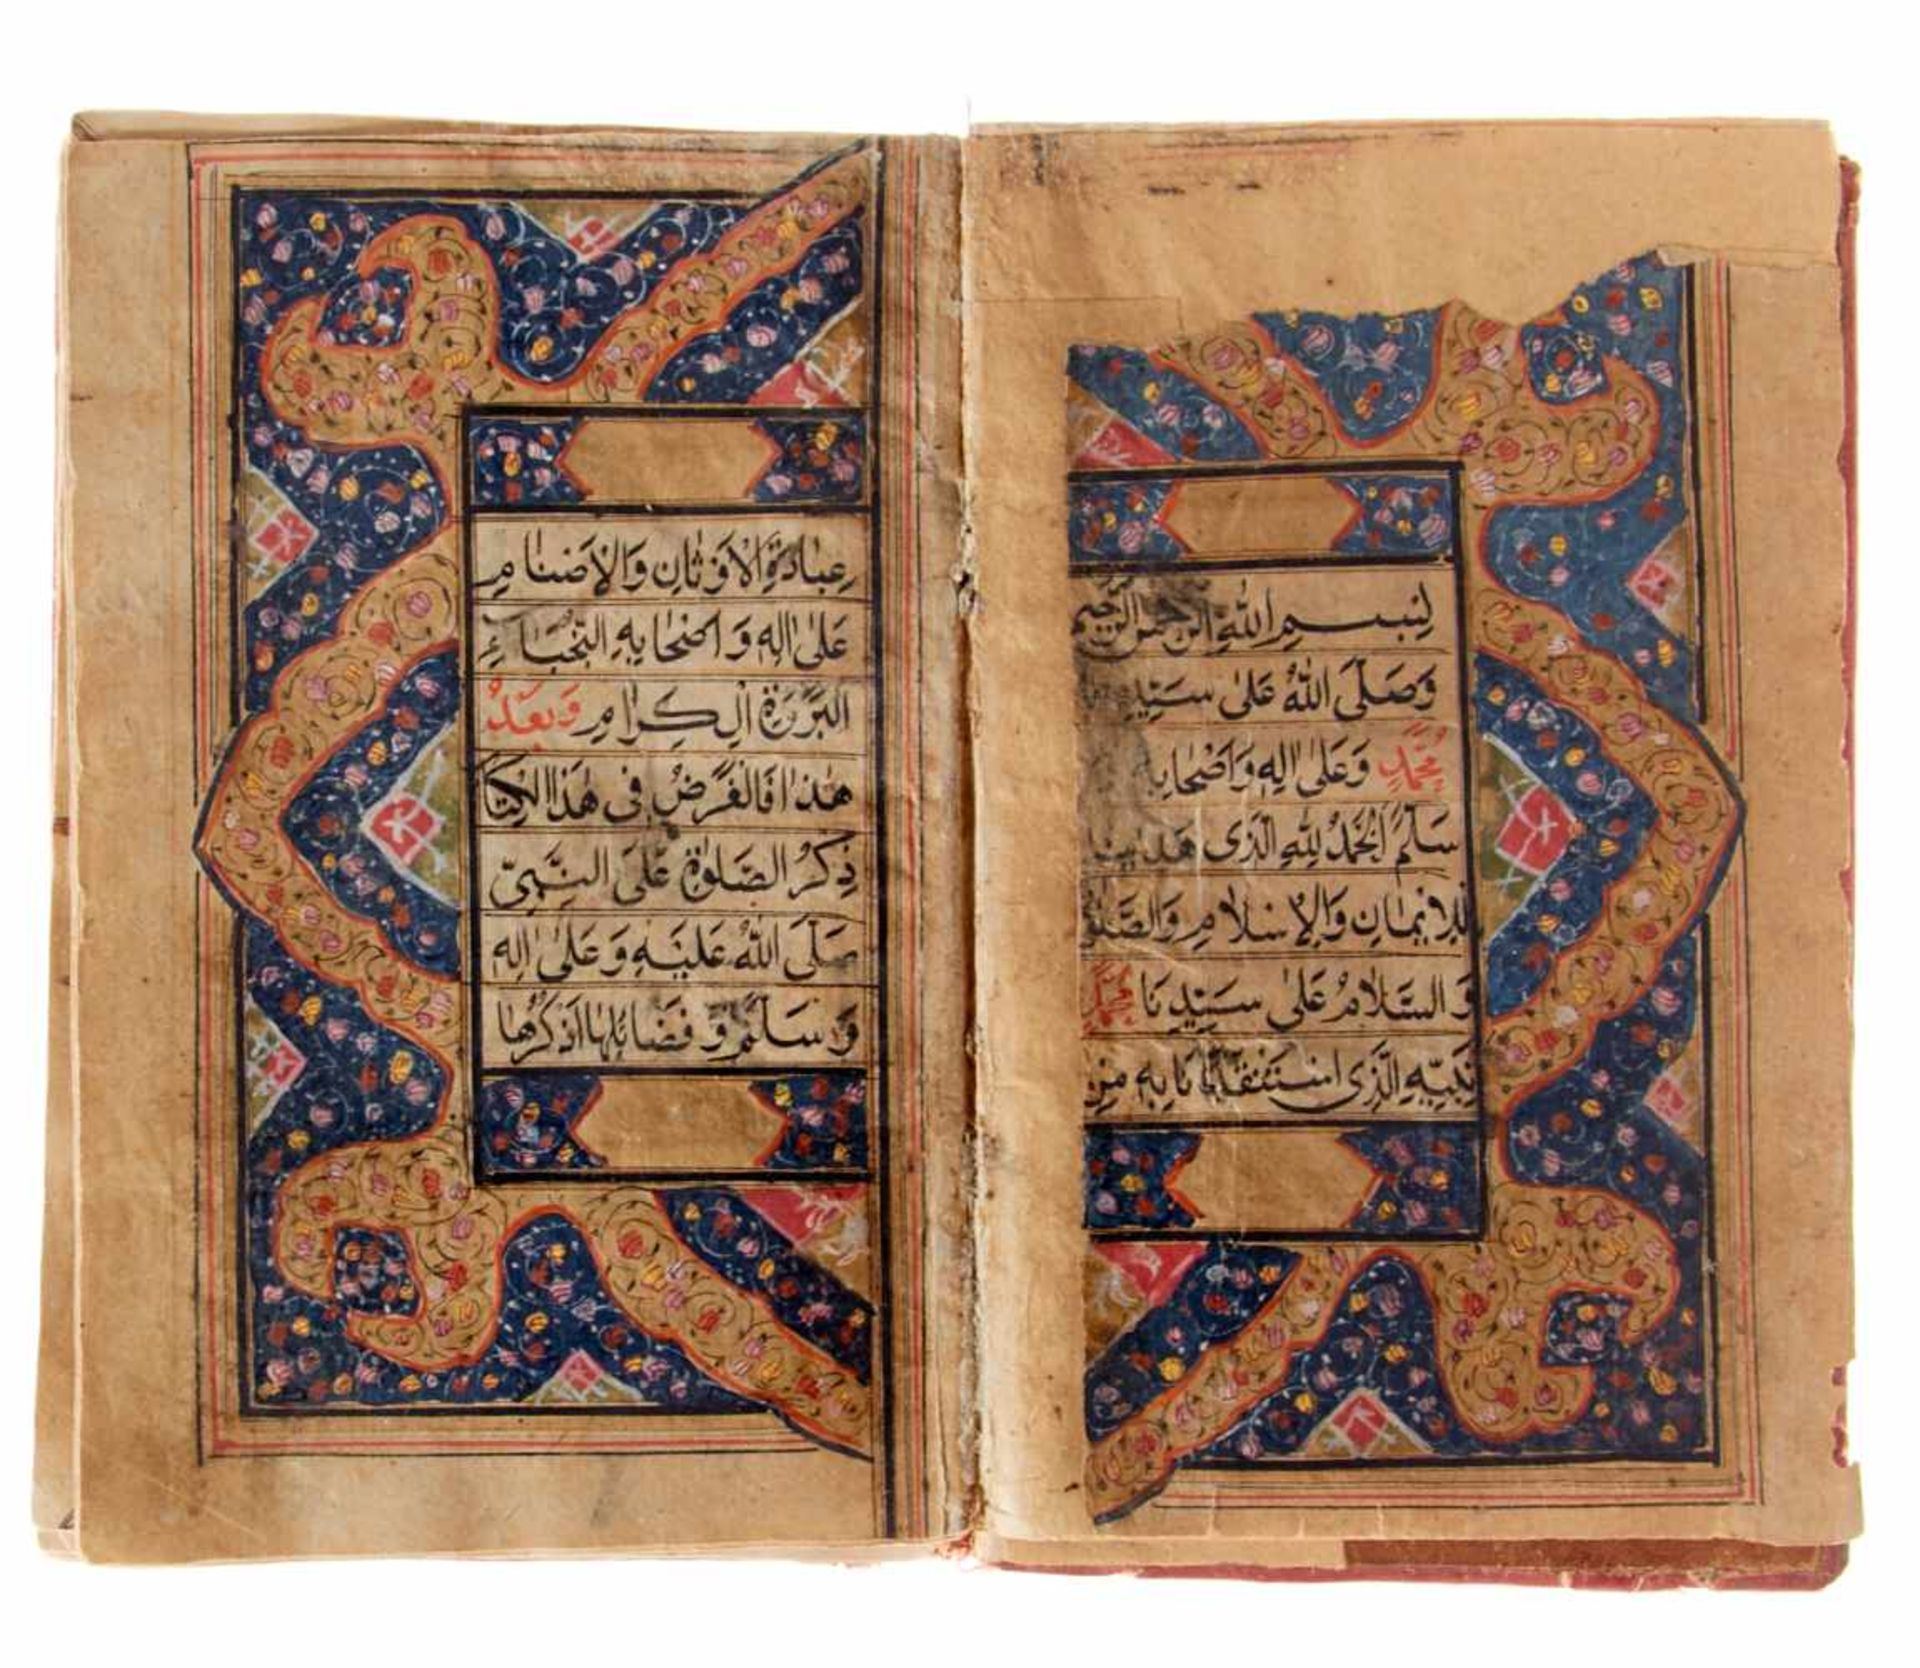 بِسْمِ اللهِ الرَّحْمٰنِ الرَّحِيْمِ
وَصَلَّى اللهُ عَلٰى سَيِّدِ
مُحَمَّدٍ وَعَلٰى اٰلِهٖ وَاَصْحَابِهٖ
سَلَّمَ اَلْحَمْدُ لِلّٰهِ الَّذِى هَدٰينَا
لِلْاِيْمَانِ وَالْاِسْلَامِ وَالصَّلٰوةُ
وَالسَّلَامُ عَلٰى سَيِّدِنَا مُحَمَّدٍ
نَبِيِّهِ الَّذِى اسْتَنْقَذَنَا بِهٖ مِنْ
عِبَادَةِ الْاَوْثَانِ وَالْاَصْنَامِ
عَلٰى اٰلِهٖ وَاَصْحَابِهِ النُّجَبَاءِ
الْبَرَرَةِ الْكِرَامِ وَبَعْدَ
هٰذَا فَالْغَرَضُ فِى هٰذَا الْكِتَا
ذِكْرُ الصَّلٰوةِ عَلَى النَّبِىِّ
صَلَّى اللهُ عَلَيْهِ وَعَلٰى اٰلِهٖ
وَسَلَّمَ وَفَضَائِلِهَا اَذْكُرُهَا